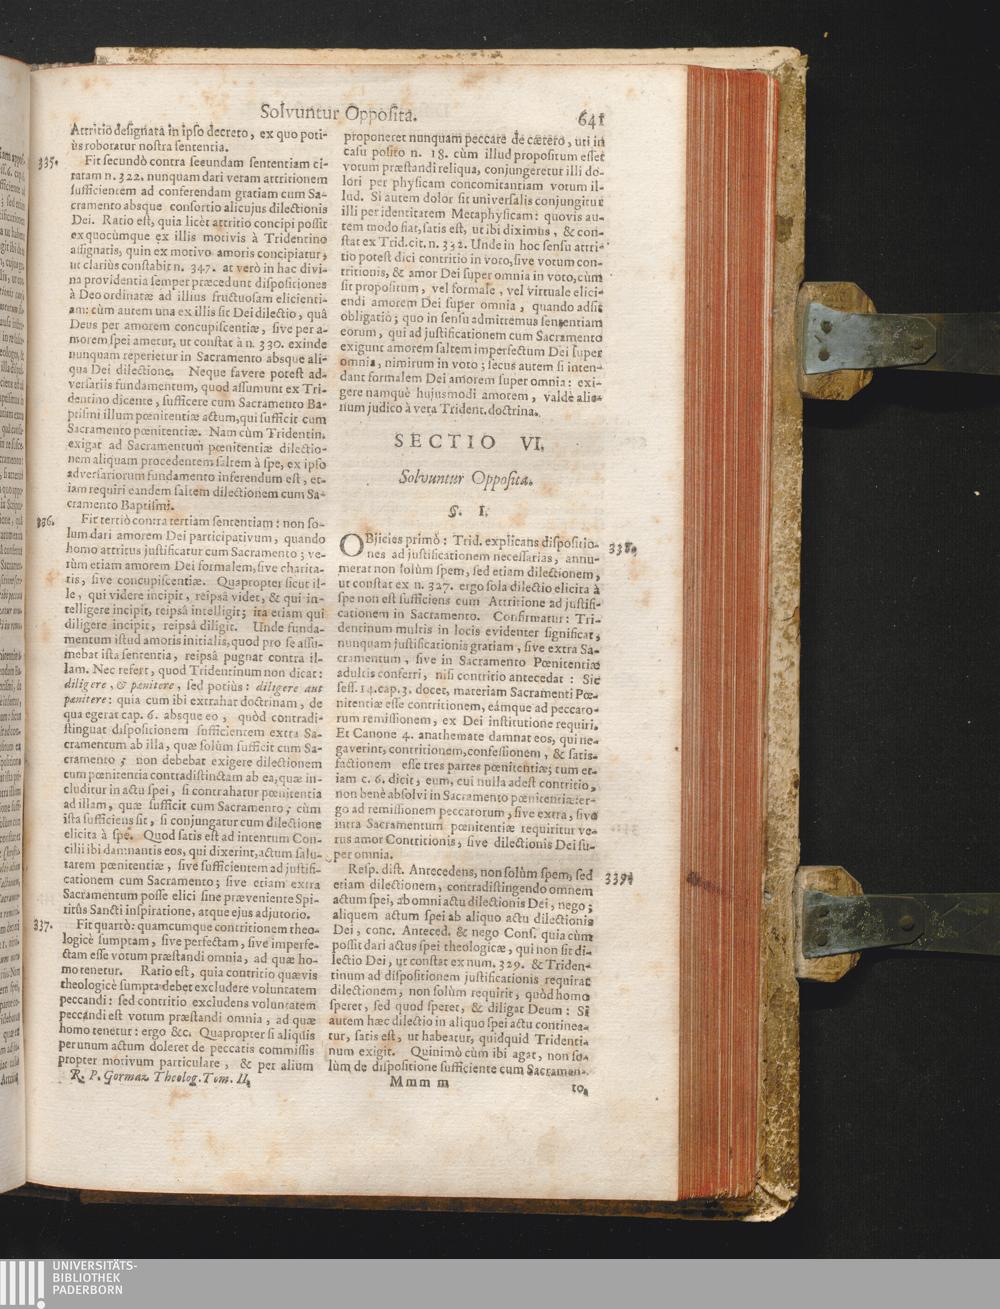 Solvuntur Opposita.
641
Attritio designata in ipso decreto, ex quo poti-
ùs roboratur nostra sententia.
335.
Fit secundò contra secundam sententiam ci-
tatam n. 322. nunquam dari veram attritionem
sufficientem ad conferendam gratiam cum Sa-
cramento absque consortio alicujus dilectionis
Dei. Ratio est, quia licèt attritio concipi possit
ex quocùmque ex illis motivis à Tridentino
assignatis, quin ex motivo amoris concipiatur,
ut clariùs constabit n. 347. at verò in hac divi-
na providentia semper præcedunt dispositiones
à Deo ordinatæ ad illius fructuosam elicienti-
am: cùm autem una ex illis sit Dei dilectio, quâ
Deus per amorem concupiscentiæ, sive per a-
morem spei ametur, ut constat à n. 330. exinde
nunquam reperietur in Sacramento absque ali-
qua Dei dilectione. Neque favere potest ad-
versariis fundamentum, quod assumunt ex Tri-
dentino dicente, sufficere cum Sacramento Ba-
ptismi illum pœnitentiæ actum, qui sufficit cum
Sacramento pœnitentiæ. Nam cùm Tridentin.
exigat ad Sacramentum pœnitentiæ dilectio-
nem aliquam procedentem saltem à spe, ex ipso
adversariorum fundamento inferendum est, et-
iam requiri eandem saltem dilectionem cum Sa-
cramento Baptismi.
336.
Fit tertiò contra tertiam sententiam: non so-
lum dari amorem Dei participativum, quando
homo attritus justificatur cum Sacramento; ve-
rùm etiam amorem Dei formalem, sive charita-
tis, sive concupiscentiæ. Quapropter sicut il-
le, qui videre incipit, reipsâ videt, & qui in-
telligere incipit, reipsâ intelligit; ita etiam qui
diligere incipit, reipsâ diligit. Unde funda-
mentum istud amoris initialis, quod pro se assu-
mebat ista sententia, reipsâ pugnat contra il-
lam. Nec refert, quod Tridentinum non dicat:
diligere, & pœnitere, sed potiùs: diligere aut
pœnitere: quia cum ibi extrahat doctrinam, de
qua egerat cap. 6. absque eo, quòd contradi-
stinguat dispositionem sufficientem extra Sa-
cramentum ab illa, quæ solùm sufficit cum Sa-
cramento; non debebat exigere dilectionem
cum pœnitentia contradistinctam ab ea, quæ in-
cluditur in actu spei, si contrahatur pœnitentia
ad illam, quæ sufficit cum Sacramento; cùm
ista sufficiens sit, si conjungatur cum dilectione
elicita à spe. Quod satis est ad intentum Con-
cilii ibi damnantis eos, qui dixerint, actum salu-
tarem pœnitentiæ, sive sufficientem ad justifi-
cationem cum Sacramento; sive etiam extra
Sacramentum posse elici sine præveniente Spi-
ritûs Sancti inspiratione, atque ejus adjutorio.
337.
Fit quartò: quamcumque contritionem theo-
logicè sumptam, sive perfectam, sive imperfe-
ctam esse votum præstandi omnia, ad quæ ho-
mo tenetur. Ratio est, quia contritio quævis
theologicè sumpta debet excludere voluntatem
peccandi: sed contritio excludens voluntatem
peccandi est votum præstandi omnia, ad quæ
homo tenetur: ergo &c. Quapropter si aliquis
per unum actum doleret de peccatis commissis
propter motivum particulare, & per alium
R. P. Gormaz Theolog. Tom. II.
proponeret nunquam peccare de cætero, uti in
casu posito n. 18. cùm illud propositum esset
votum præstandi reliqua, conjungeretur illi do-
lori per physicam concomitantiam votum il-
lud. Si autem dolor sit universalis conjungitur
illi per identitatem Metaphysicam: quovis au-
tem modo fiat, satis est, ut ibi diximus, & con-
stat ex Trid. cit. n. 332. Unde in hoc sensu attri-
tio potest dici contritio in voto, sive votum con-
tritionis, & amor Dei super omnia in voto, cùm
sit propositum, vel formale, vel virtuale elici-
endi amorem Dei super omnia, quando adsit
obligatio; quo in sensu admittemus sententiam
eorum, qui ad justificationem cum Sacramento
exigunt amorem saltem imperfectum Dei super
omnia, nimirum in voto; secus autem si inten-
dant formalem Dei amorem super omnia: exi-
gere namque hujusmodi amorem, valdè alie-
num judico à vera Trident. doctrina.
SECTIO VI.
Solvuntur Opposita.
§. I.
338.
OBjicies primò: Trid. explicans dispositio-
nes ad justificationem necessarias, annu-
merat non solùm spem, sed etiam dilectionem,
ut constat ex n. 327. ergo sola dilectio elicita à
spe non est sufficiens cum Attritione ad justifi-
cationem in Sacramento. Confirmatur: Tri-
dentinum multis in locis evidenter significat,
nunquam justificationis gratiam, sive extra Sa-
cramentum, sive in Sacramento Pœnitentiæ
adultis conferri, nisi contritio antecedat: Sic
sess. 14. cap. 3. docet, materiam Sacramenti Pœ-
nitentiæ esse contritionem, eámque ad peccato-
rum remissionem, ex Dei institutione requiri.
Et Canone 4. anathemate damnat eos, qui ne-
gaverint, contritionem, confessionem, & satis-
factionem esse tres partes pœnitentiæ; tum et-
iam c. 6. dicit, eum, cui nulla adest contritio,
non benè absolvi in Sacramento pœnitentiæ: er-
go ad remissionem peccatorum, sive extra, sive
intra Sacramentum pœnitentiæ requiritur ve-
rus amor Contritionis, sive dilectionis Dei su-
per omnia.
339.
Resp. dist. Antecedens, non solùm spem, sed
etiam dilectionem, contradistingendo omnem
actum spei, ab omni actu dilectionis Dei, nego;
aliquem actum spei ab aliquo actu dilectionis
Dei, conc. Anteced. & nego Cons. quia cùm
possit dari actus spei theologicæ, qui non sit di-
lectio Dei, ut constat ex num. 329. & Triden-
tinum ad dispositionem justificationis requirat
dilectionem, non solùm requirit, quòd homo
speret, sed quod speret, & diligat Deum: Si
autem hæc dilectio in aliquo spei actu continea-
tur, satis est, ut habeatur, quidquid Tridenti-
num exigit. Quinimò cùm ibi agat, non so-
lùm de dispositione sufficiente cum Sacramen-
Mmm m
to,
UNIVERSITÄTS-
BIBLIOTHEK
PADERBORN